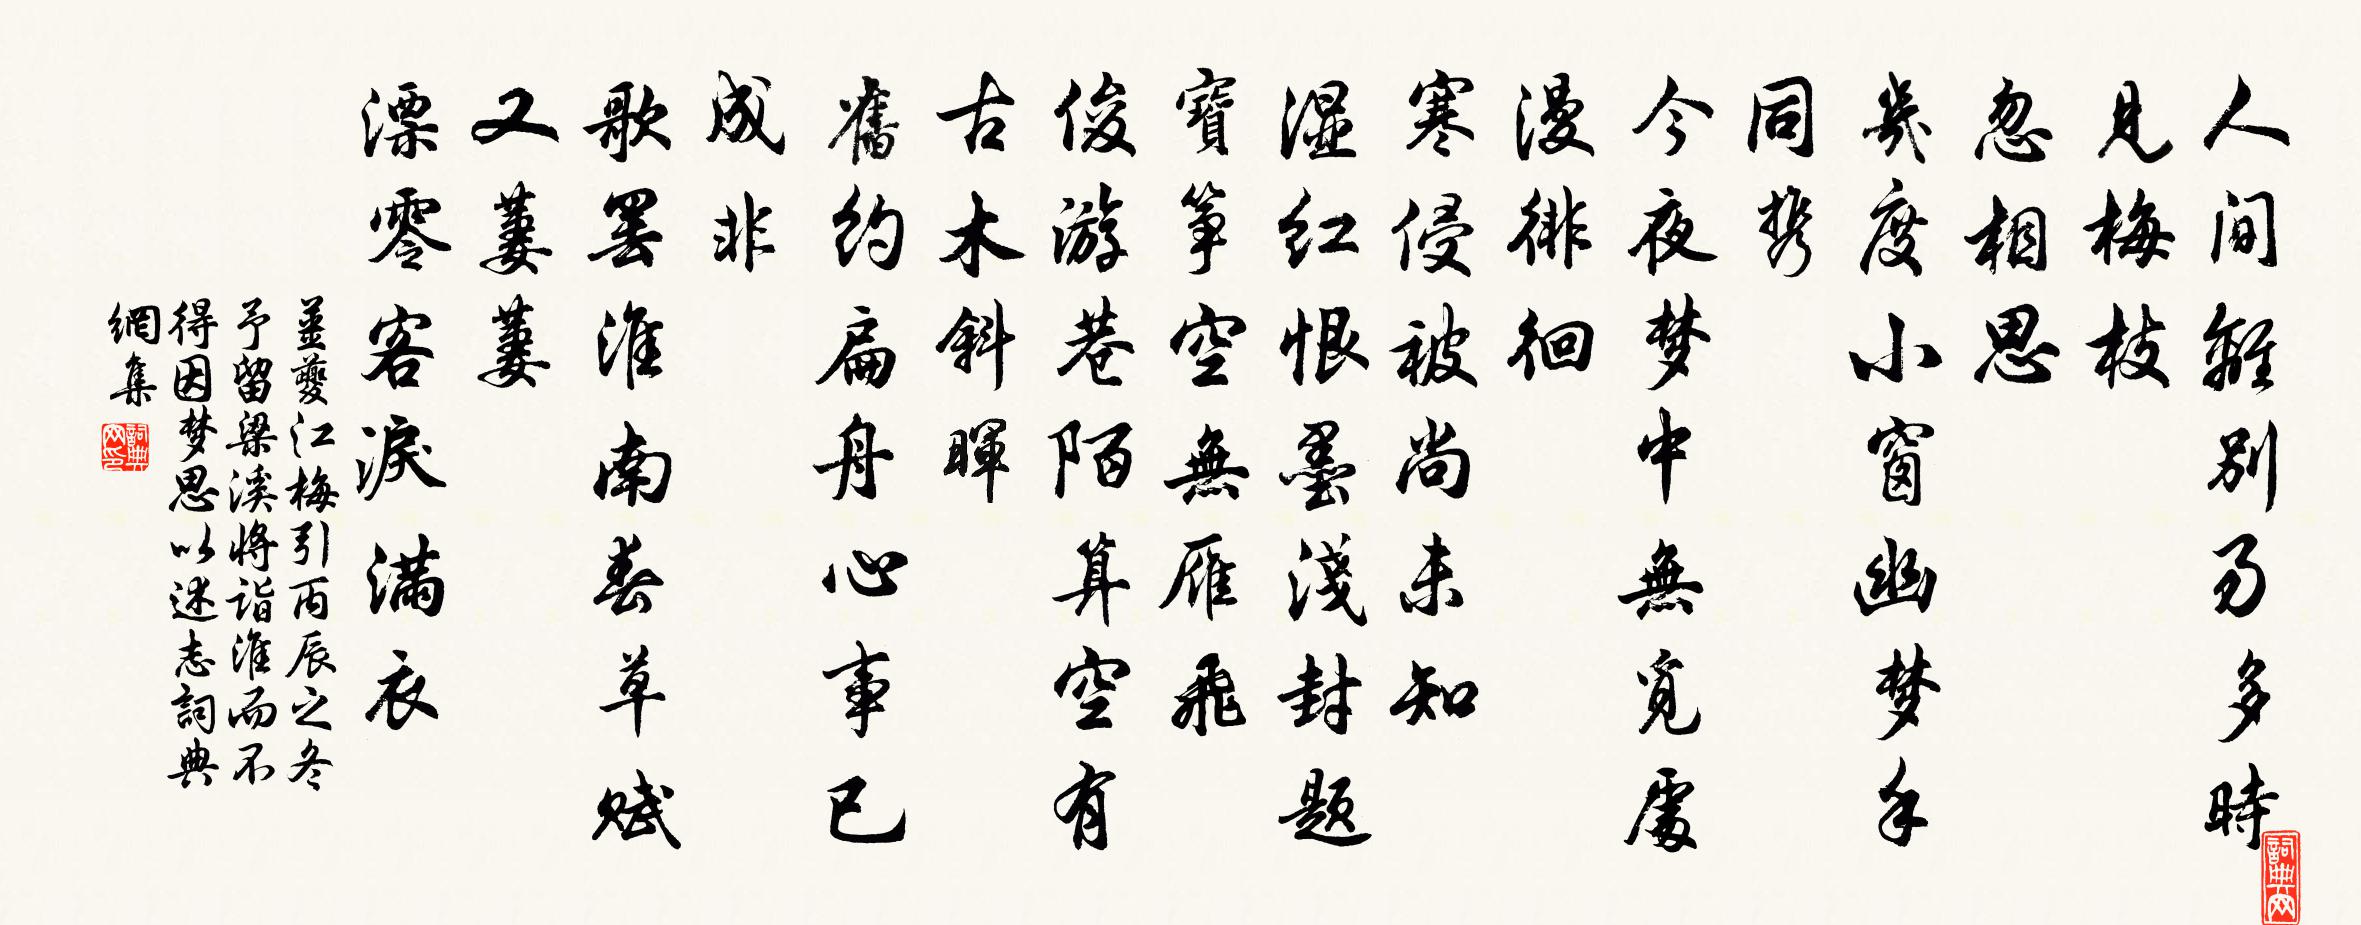 人间離别易多時
見梅枝
忽相思
幾度小窗幽梦手
同携
今夜梦中無覓處
漫徘徊
寒侵被尚未知
湿红恨墨淺封題
寶筝空無雁飛
俊游巷陌算空有
古木斜暉
舊约扁舟心事已
成非
歌罢淮南春草賦
又萋萋
漂零客淚满衣
姜夔江梅引丙辰之冬
予留梁溪将詣淮而不
得因梦思以述志詞典
網集
詞典网印
詞典网